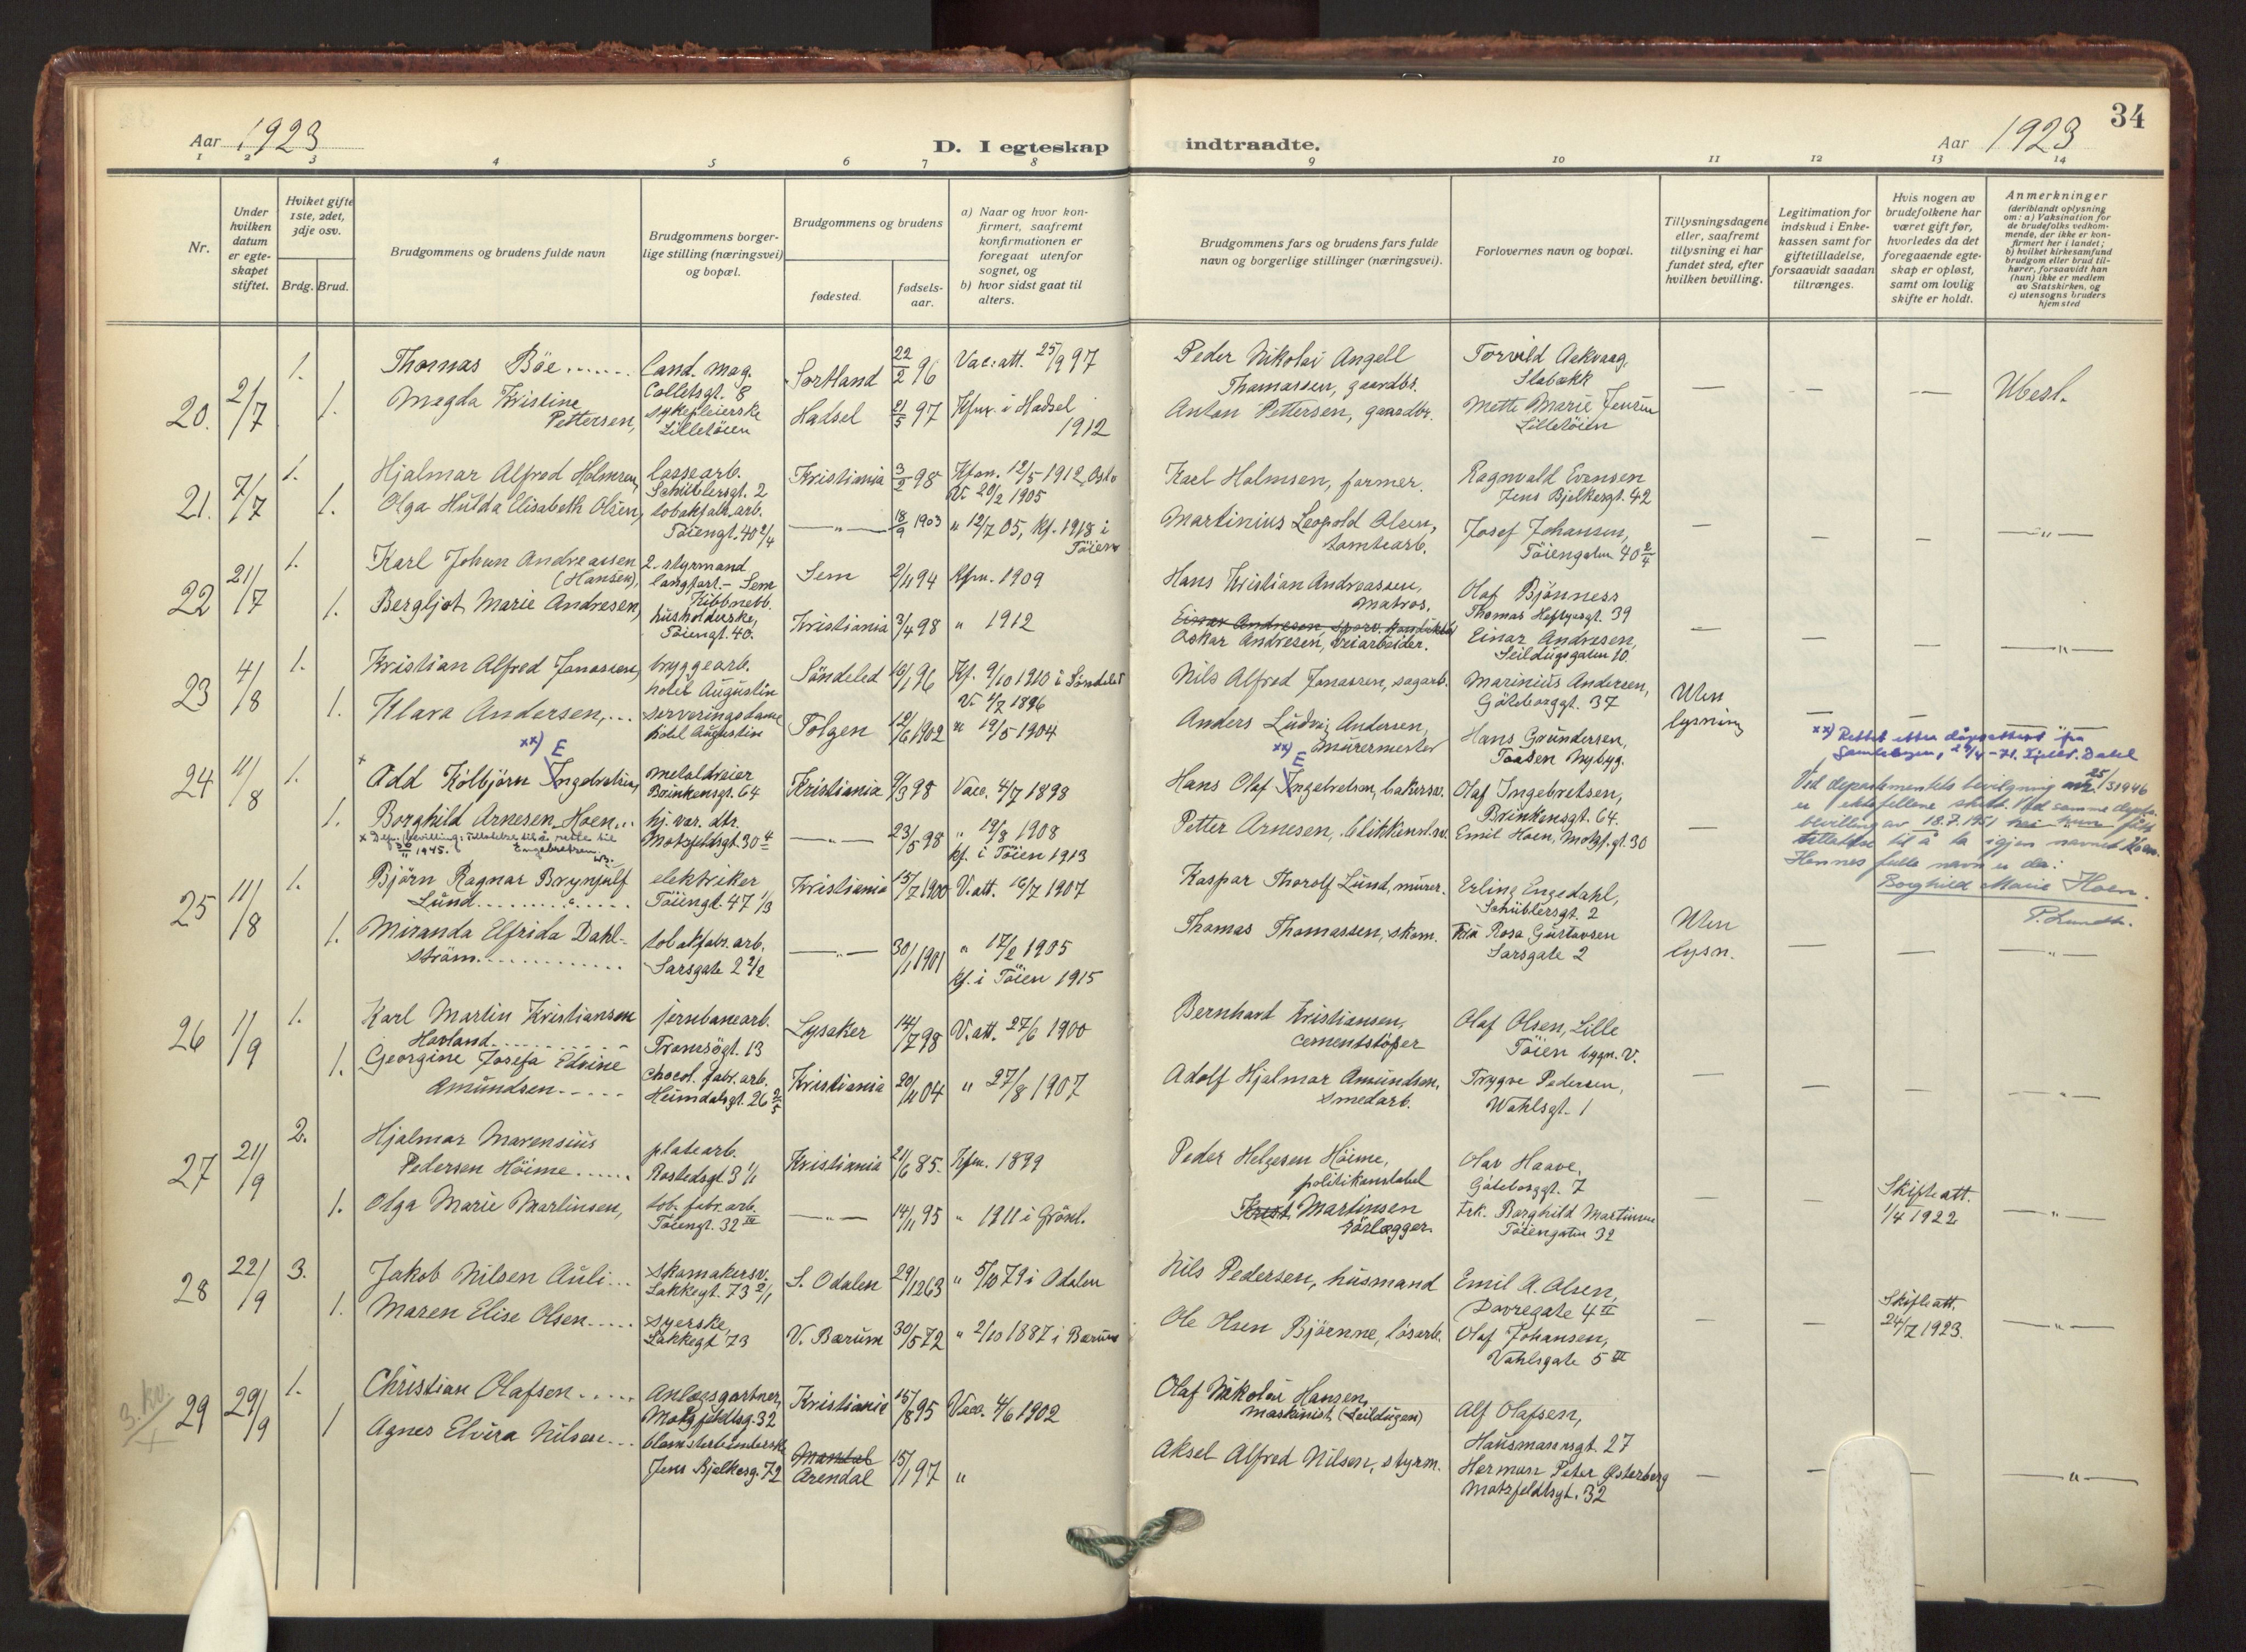 34
Aar 1923
D. I egteskap indtraadte.
Aar 1923
1 2 3 4 5 6 7 8 9 10 11 12 13 14
Nr.
Under hvilken datum er egteskapet stiftet.
Hviket gifte 1ste, 2det, 3dje osv.
Brdg. Brud.
Brudgommens og brudens fulde navn
Brudgommens borgerlige stilling (næringsvei) og bopæl.
Brudgommens og brudens
fødested.
fødselsaar.
a) Naar og hvor konfirmert, saafremt konfirmationen er foregaat utenfor sognet, og
b) hvor sidst gaat til alters.
Brudgommens fars og brudens fars fulde navn og borgerlige stillinger (næringsvei).
Forlovernes navn og bopæl.
Tillysningsdagene eller, saafremt tillysning ei har fundet sted, efter hvilken bevilling.
Legitimation for indskud i Enkekassen samt for giftetilladelse, forsaavidt saadan tiltrænges.
Hvis nogen av brudefolkene har været gift før, hvorledes da det foregaaende egteskap er opløst, samt om lovlig skifte er holdt.
Anmerkninger (deriblandt oplysning om: a) Vaksination for de brudefolks vedkommende, der ikke er konfirmert her i landet; b) hvilket kirkesamfund brudgom eller brud tilhører, forsaavidt han (hun) ikke er medlem av Statskirken, og c) utensogns bruders hjemsted
20. 2/7 1. Thomas Böe...... Cand. mag. Colletsgt. 8 Sortland 22/2 96 Vac. att. 25/9 97 Peder Nikolai Angell Thomassen, gaardbr. Torvild Aakvaag, Stabækk — — — Ubesl.
1. Magda Kristine Pettersen, sykepleierske Lilletöien Hadsel 21/5 97 Kfm. i Hadsel 1912 Anton Pettersen, gaardbr. Mette Marie Jensen Lilletöien
21. 7/7 1. Hjalmar Alfred Holmsen, lassearb. Schüblersgt. 2 Kristiania 3/2 98 Kfm. 12/5 1912, Oslo V. 20/2 1905 Karl Holmsen, farmer. Ragnvald Evensen Jens Bjelkesgt. 42
1. Olga Hulda Elisabeth Olsen, tobakfabr. arb. Töiengt. 40 2/4 —"— 18/9 1903 " 12/7 05, kf. 1918 i Töien Martinius Leopold Olsen, tomtearb. Josef Johansen, Töiengaten 40 2/4 — — — —"—
22 21/7 1. Karl Johan Andreassen (Hansen), 2. styrmand langfart. - Sem Sem 2/11 94 Kfm. 1909 Hans Kristian Andreassen, matros. Olaf Bjönness Thomas Heftyesgt. 39
1. Bergljot Marie Andresen, husholderske, Töiengt. 40. Kristiania 3/4 98 " 1912 Einar Andresen, sporv. konduktør Oskar Andresen, veiarbeider. Einar Andresen, Seildugsgaten 10. — — — —"—
23 4/8 1. Kristian Alfred Jonassen, bryggearb. hotel Augustin Söndeled 16/1 96 Kf. 9/10 1910 i Söndeled V. 4/7 1896 Nils Alfred Jonassen, sagarb. Marinius Andersen, Göteborggt. 37 Uten lysning
1. Klara Andersen,... serveringsdame hotel Augustin Tolgen 12/6 1902 " 19/5 1904 Anders Ludvig Andersen, murermester Hans Gundersen, Taasen Nybyg. — — —"—
24 11/8 1. x Odd Kolbjörn Ingebretsen, xx) E metaldreier Brinkensgt. 64 Kristiania 9/3 98 Vacc. 4/7 1898 Hans Olaf Ingebretsen, bakersv. xx) E Olaf Ingebretsen, Brinkensgt. 64.
1. Borghild Arnesen Hoen... hj. vær. dtr. Motzfeldtsgt. 30 4 —"— 23/5 98 " 19/8 1908 kf. i Töien 1913 Petter Arnesen, blikkensl. sv. Emil Hoen, Motzf. gt. 30 —
x Dep. bevilling: Tilladelse til å rette til Engebretsen. 1945.
xx) Rettet etter dåpsattest fra 29/4-71. Dahl
Ved departementets bevilgning av 25/3 1946 er ektefellene skilt. Ved samme departs. bevilling av 18.7.1951 har hun fått tillatelse til å ta igjen navnet Hoen. Hennes fulle navn er da: Borghild Marie Hoen. P. Lund
25 11/8 1. Björn Ragnar Brynjulf Lund............ elektriker Töiengt. 47 1/3 Kristiania 15/7 1900 V. att. 16/7 1907 Kaspar Thorolf Lund, murer. Erling Engedahl, Schüblersgt. 2 Uten lysn.
1. Miranda Elfrida Dahlström............ tobakfabr. arb. Sarsgate 2 2/2 —"— 30/1 1901 " 17/2 1905 kf. i Töien 1915 Thomas Thomassen, skom. Rosa Gustavsen Sarsgate 2 — — —"—
26 1/9 1. Karl Martin Kristiansen Havland.......... jernbanearb. Tromsögt. 13 Lysaker 14/7 98 V. att. 27/6 1900 Bernhard Kristiansen, cementstöper Olaf Olsen, Lille Töien bygn. V.
1. Georgine Josefa Edvine Amundsen..... Chocol. fabr. arb. Heimdalsgt. 26 2/5 Kristiania 20/11 04 " 27/8 1907 Adolf Hjalmar Amundsen, smedarb. Trygve Pedersen, Wahlsgt. 1 — — — —"—
27 21/9 2. Hjalmar Marensius Pedersen Höime...... platearb. Rostedsgt 3 1/1 Kristiania 21/6 85. Kfm. 1899 Peder Helgesen Höime, politikonstabel Olav Haave, Göteborggt. 7
1. Olga Marie Martinsen, tob. fabr. arb. Töiengt. 32 III —"— 14/11 95 " 1911 i Grönl. Krist. Martinsen rörlægger. Frk. Borghild Martinsen Töiengaten 32 — — Skifte att. 1/4 1922 —"—
28 22/9 3. Jakob Nilsen Auli... skomakersv. Lakkegt. 73 2/1 S. Odalen 29/12 63 " 5/10 79 i Odalen Nils Pedersen, husmand Emil A. Olsen, Dovregate 4 II
1. Maren Elise Olsen..... syerske, Lakkegt 73 V. Bærum 30/5 72 " 2/10 1887 i Bærum Ole Olsen Björnne, lösarb. Olaf Johansen, Vahlsgate 5 III — — Skifte att. 24/7 1923. —"—
3. kv.
29 29/9 1. Christian Olafsen..... Anlægsgartner, Motzfeldtsg. 32 Kristiania 15/8 95 Vacc. 4/6 1902 Olaf Nikolai Hansen, maskinist (Seildugen) Alf Olafsen, Hausmannsgt. 27
1 Agnes Elvira Nilsen... blomsterbinderske Jens Bjelkesg. 72 Mandal Arendal 15/1 97 " Aksel Alfred Nilsen, styrm. Herman Peter Østerberg Motzfeldtsgt. 32 — — — —"—